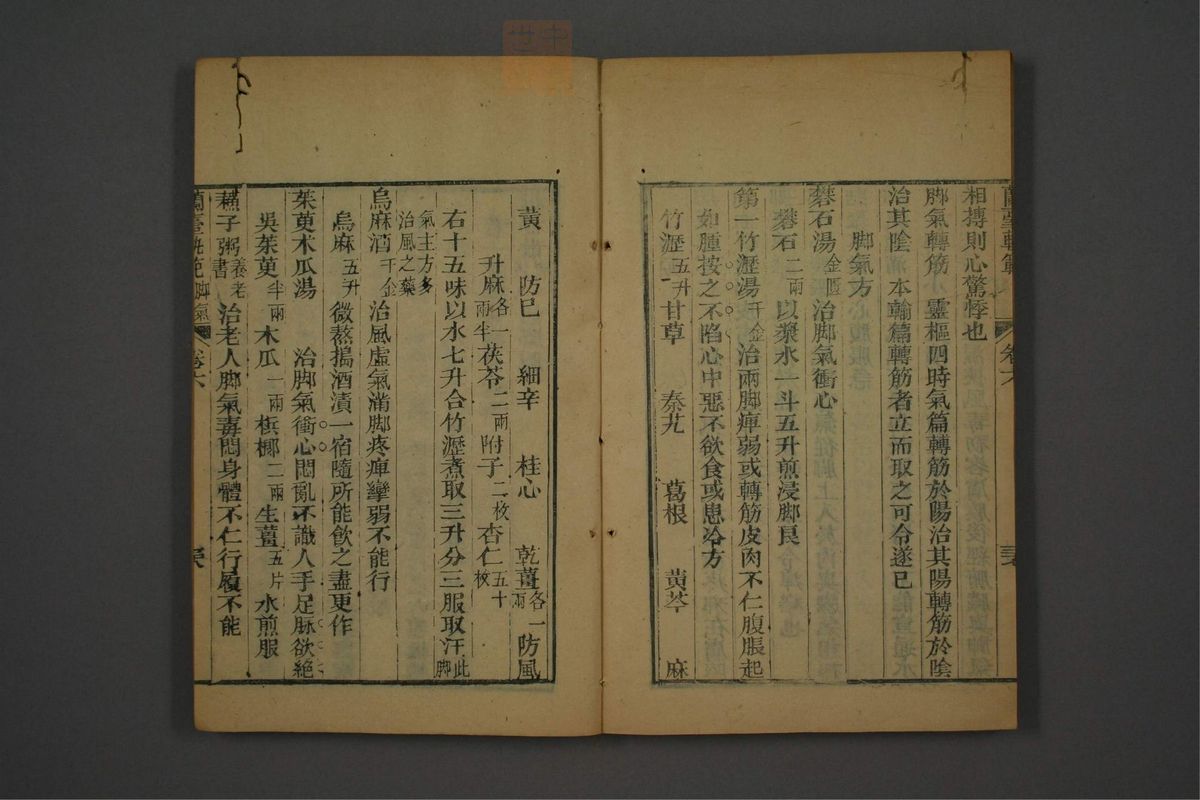 蘭臺軌範 卷六
相搏則心驚悸也
脚氣轉筋 靈樞四時氣篇轉筋於陽治其陽轉筋於陰
治其陰 本輸篇轉筋者立而取之可令遂已
脚氣方
礬石湯金匱 治脚氣衝心
礬石二兩 以漿水一斗五升煎浸脚良
第一竹瀝湯千金 治兩脚痺弱或轉筋皮肉不仁腹脹起
如腫按之不陷心中惡不欲食或患冷方
竹瀝五升 甘草 秦艽 葛根 黃芩 麻
黃 防已 細辛 桂心 乾薑各一兩 防風
升麻各一兩半 茯苓二兩 附子二枚 杏仁五十枚
右十五味以水七升合竹瀝煮取三升分三服取汗此脚
氣主方多治風之藥
烏麻酒千金 治風虛氣滿脚疼痺攣弱不能行
烏麻五升 微熬搗酒漬一宿隨所能飲之盡更作
茱萸木瓜湯 治脚氣衝心悶亂不識人手足脉欲絕
吳茱萸半兩 木瓜一兩 檳榔二兩 生薑五片 水煎服
蘇子粥養老書 治老人脚氣毒悶身體不仁行履不能
蘭臺軌範 脚氣 卷六